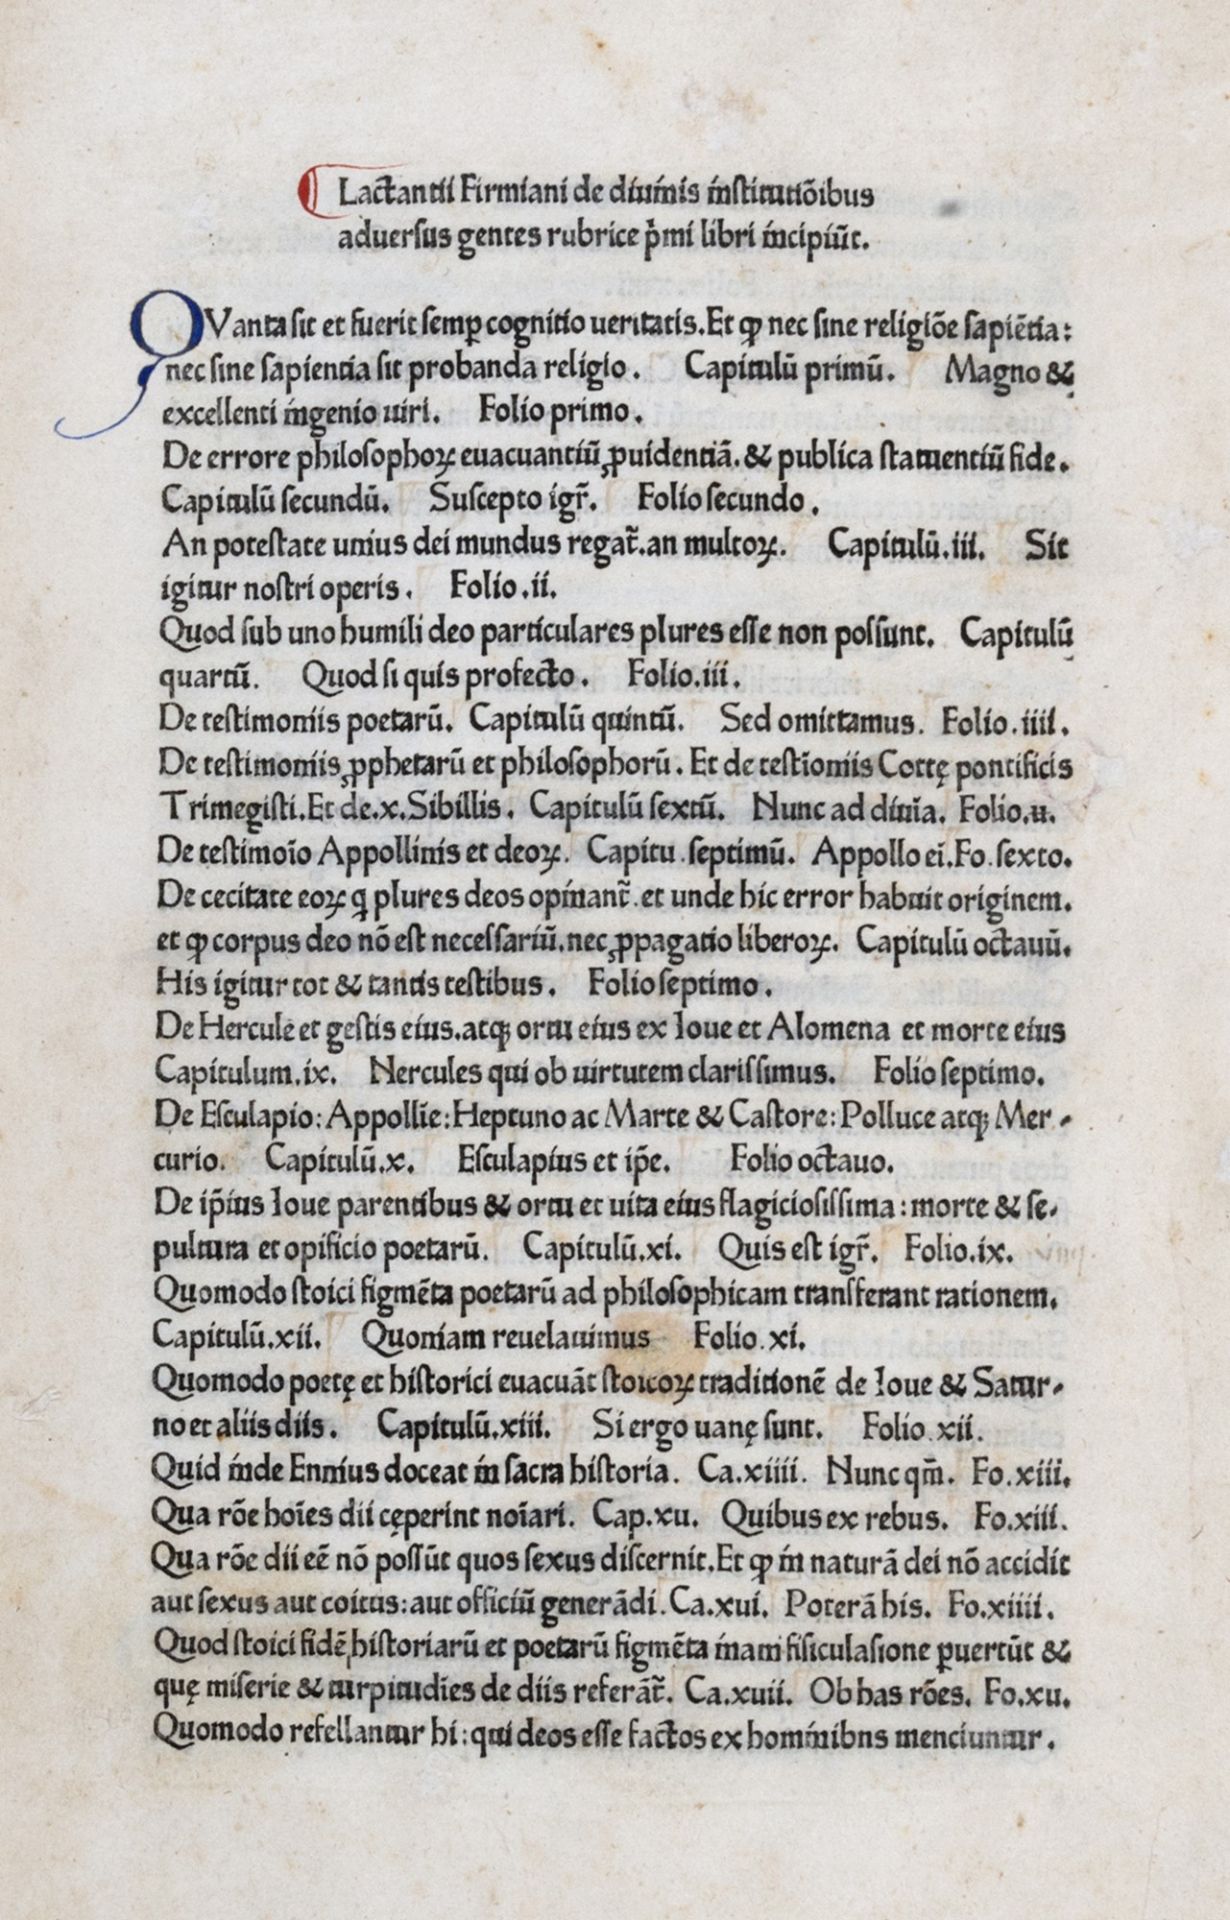 Lactantii Firmiani de diuinis institutiōibus
aduersus gentes rubrice p̄mi libri incipiūt.
QVanta sit et fuerit semꝑ cognitio ueritatis. Et ꝙ nec sine religiōe sapiētia:
nec sine sapientia sit probanda religio. Capitulū primū. Magno &
excellenti ingenio uiri. Folio primo.
De errore philosophoꝝ euacuantiū ꝓuidentiā. & publica statuentiū fide.
Capitulū secundū. Suscepto igr̄. Folio secundo.
An potestate unius dei mundus regat̄. an multoꝝ. Capitulū.iii. Sit
igitur nostri operis. Folio.ii.
Quod sub uno humili deo particulares plures esse non possunt. Capitulū
quartū. Quod si quis profecto. Folio.iii.
De testimoniis poetarū. Capitulū quintū. Sed omittamus. Folio.iiii.
De testimoniis ꝓphetarū et philosophorū. Et de testīoniis Cottę pontificis
Trimegisti. Et de.x. Sibillis. Capitulū sextū. Nunc ad diuīa. Folio.u.
De testimoīo Appollinis et deoꝝ. Capitu. septimū. Appollo eī. Fo. sexto.
De cecitate eoꝝ ꝗ plures deos opinant̄. et unde hic error habuit originem.
et ꝙ corpus deo nō est necessariū. nec ꝓpagatio liberoꝝ. Capitulū octauū.
His igitur tot & tantis testibus. Folio septimo.
De Hercule et gestis eius. atqꝫ ortu eius ex Ioue et Alomena et morte eius
Capitulum.ix. Nercules qui ob uirtutem clarissimus. Folio septimo.
De Esculapio: Appollīe: Heptuno ac Marte & Castore: Polluce atqꝫ Mer-
curio. Capitulū.x. Esculapius et ip̄e. Folio octauo.
De ip̄ius Ioue parentibus & ortu et uita eius flagiciosissima: morte & se-
pultura et opificio poetarū. Capitulū.xi. Quis est igr̄. Folio.ix.
Quomodo stoici figmēta poetarū ad philosophicam transferant rationem.
Capitulū.xii. Quoniam reuelauimus Folio.xi.
Quomodo poetę et historici euacuāt stoicoꝝ traditionē de Ioue & Satur-
no et aliis diis. Capitulū.xiii. Si ergo uanę sunt. Folio.xii.
Quid inde Ennius doceat in sacra historia. Ca.xiiii. Nunc qm̄. Fo.xiii.
Qua rōe hoīes dii cęperint noīari. Cap.xu. Quibus ex rebus. Fo.xiii.
Qua rōe dii eē nō possūt quos sexus discernit. Et ꝙ in naturā dei nō accidit
aut sexus aut coitus: aut officiū generādi. Ca.xui. Poterā his. Fo.xiiii.
Quod stoici fidē historiarū et poetarū figmēta inani fisiculasione ꝑuertūt &
quę miserie & turpitudīes de diis referāt̄. Ca.xuii. Ob has rōes. Fo.xu.
Quomodo refellantur hi: qui deos esse factos ex hominibns menciuntur.